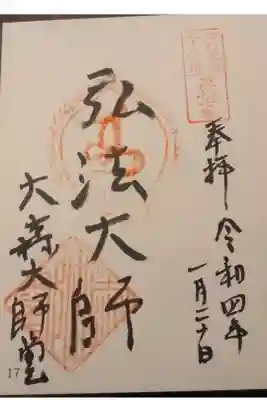 奉拝 令和四年
一月二十日
弘法大師
大森大師堂
17